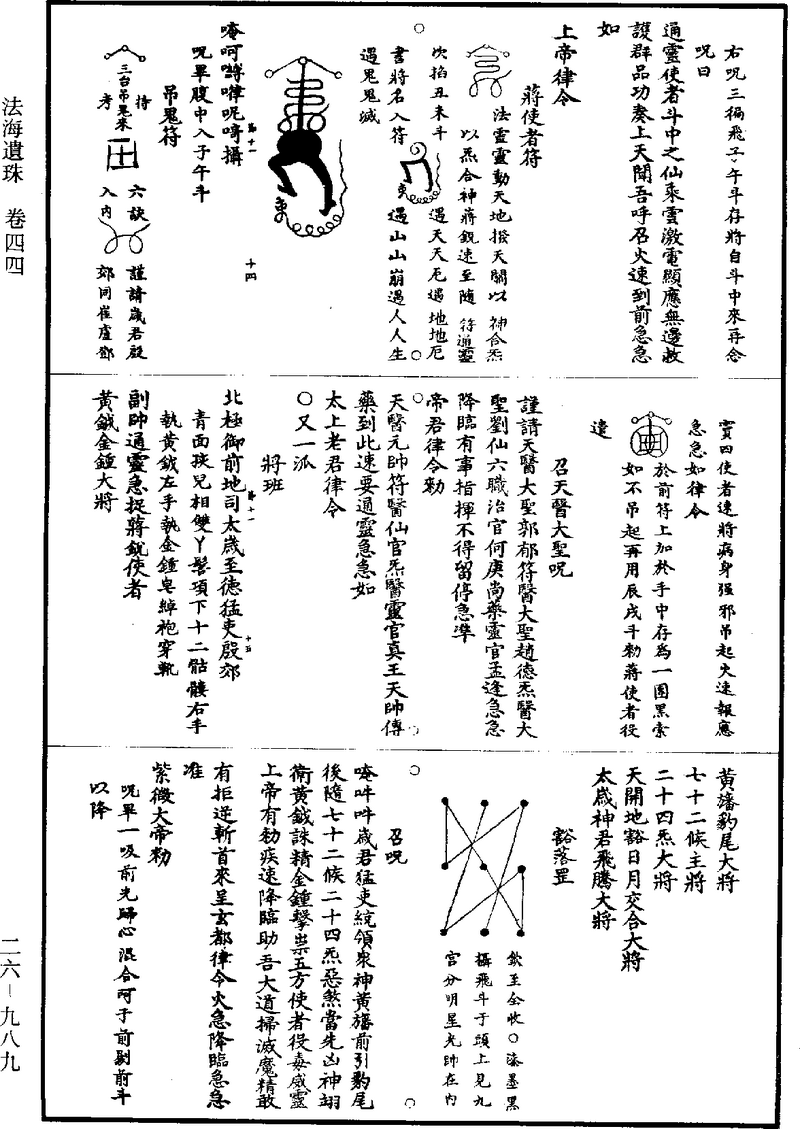 法海遺珠 卷四四
二六—九八九
右呪三徧飛子午斗存將自斗中來再念
呪曰
通靈使者斗中之仙乘雲激電顯應無邊救
護群品功奏上天聞吾呼召火速到前急急
如
上帝律令
蔣使者符
法靈靈動天地撥天關以神合炁
以炁合神蔣銳速至隨符通靈
次掐丑未斗
遇天天厄遇地地厄
書將名入符
遇山山崩遇人人生
遇鬼鬼滅
第十一
十四
唵呵𠹌嘚呢唷攝
呪畢腹中入子午斗
吊鬼符
三台吊鬼來
持
考
六訣
入內
謹請歲君殷
郊同崔盧鄧
竇四使者速將病身强邪吊起火速報應
急急如律令
於前符上加於手中存為一團黑索
如不吊起再用辰戌斗勑蔣使者役
遣
召天醫大聖呪
謹請天醫大聖郭郁符醫大聖趙德炁醫大
聖劉仙六職治官何庚尚藥靈官孟逢急急
降臨有事指揮不得留停急準
帝君律令勑
天醫元帥符醫仙官炁醫靈官真王天帥傳
藥到此速要通靈急急如
太上老君律令
○又一派
將班
第十一
十五
北極御前地司太歲至德猛吏殷郊
青面孩兒相雙丫髻項下十二骷髏右手
執黃鉞左手執金鍾皂綽袍穿靴
副帥通靈急捉蔣銳使者
黃鉞金鍾大將
黃旛豹尾大將
七十二候主將
二十四炁大將
天開地豁日月交合大將
太歲神君飛騰大將
豁落罡
欽至全收○漆墨黑
攝飛斗于頭上見九
宮分明星光帥在內
召呪
唵吽吽歲君猛吏統領衆神黃旛前引豹尾
後隨七十二候二十四炁惡煞當先凶神翊
衛黃鉞誅精金鍾擊祟五方使者役毒威靈
上帝有勑疾速降臨助吾大道掃滅魔精敢
有拒逆斬首來呈玄都律令火急降臨急急
准
紫微大帝勑
呪畢一吸前光歸心混合呵于前剔前斗
以降